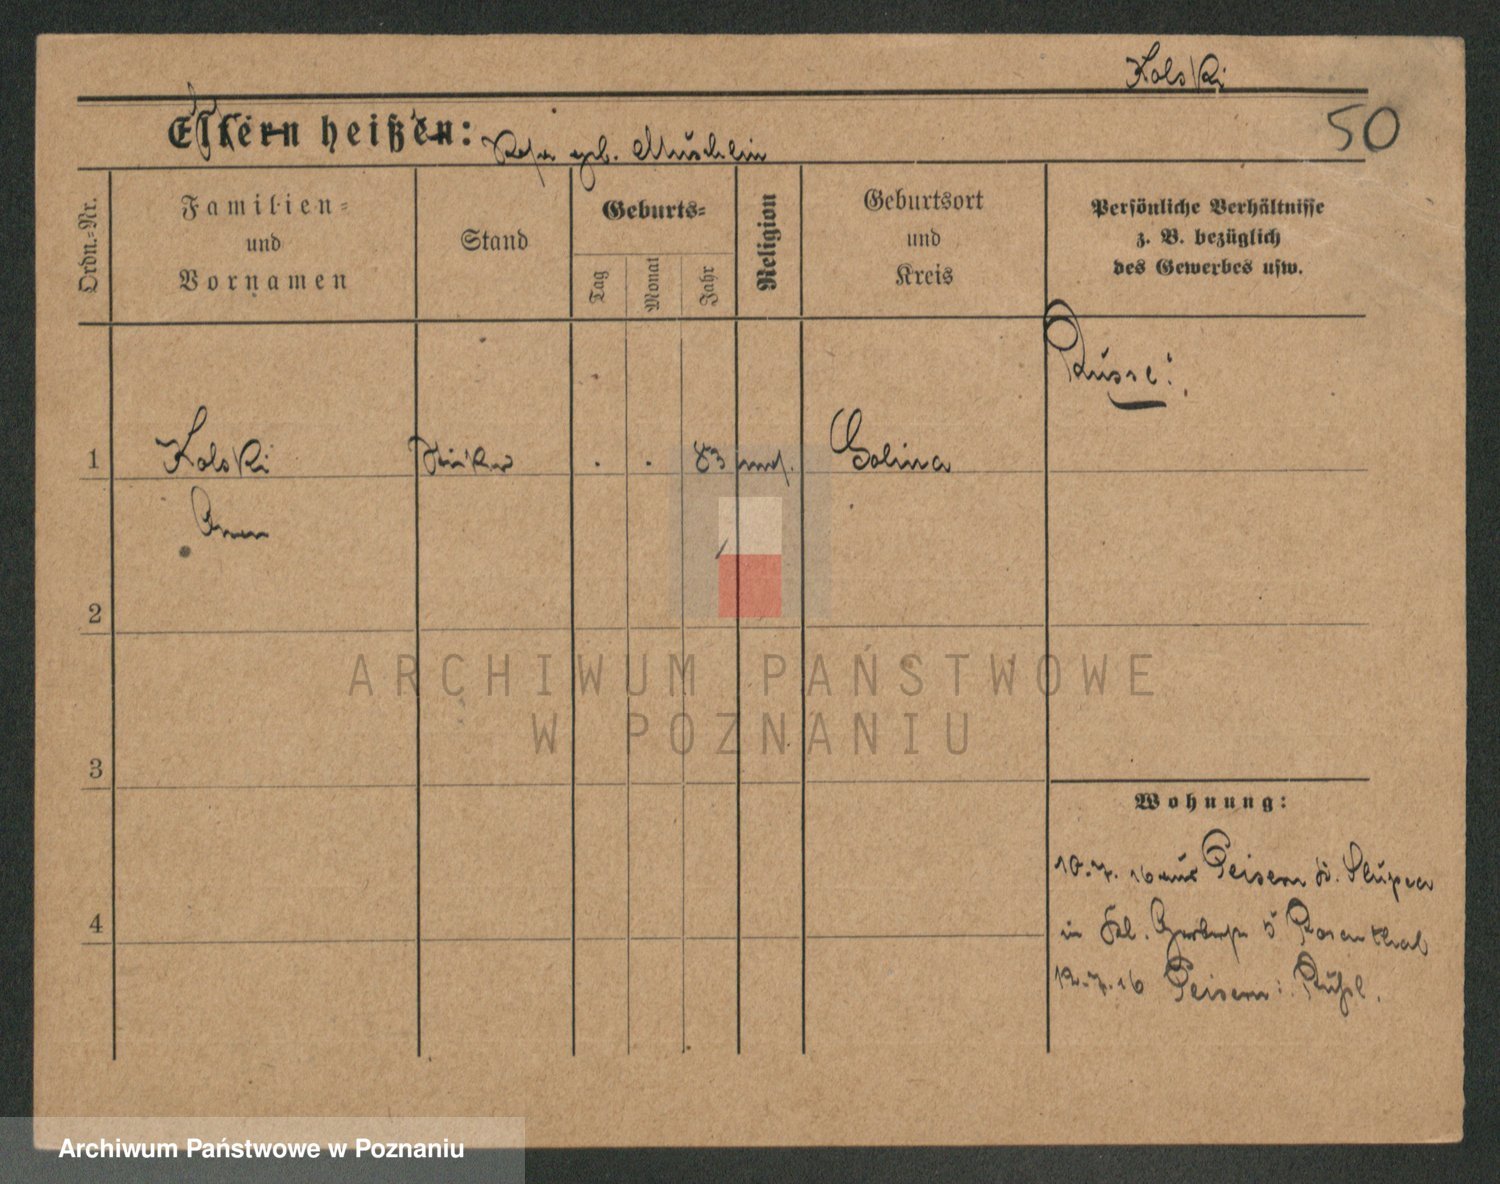 Kolski
50
Eltern heißen:
geb.
Ordn.=Nr.
Familien=
und
Vornamen
Stand
Geburts=
Tag
Monat
Jahr
Religion
Geburtsort
und
Kreis
Persönliche Verhältnisse
z. B. bezüglich
des Gewerbes usw.
Russe!
1 Kolski . . 83 mos. Golina
2
ARCHIWUM PAŃSTWOWE
W POZNANIU
3
Wohnung:
10.7.16 aus Peisern b. Slupca
in Kl. Gerberstr 5 Rosenthal
12.7.16 Peisern:
4
Archiwum Państwowe w Poznaniu